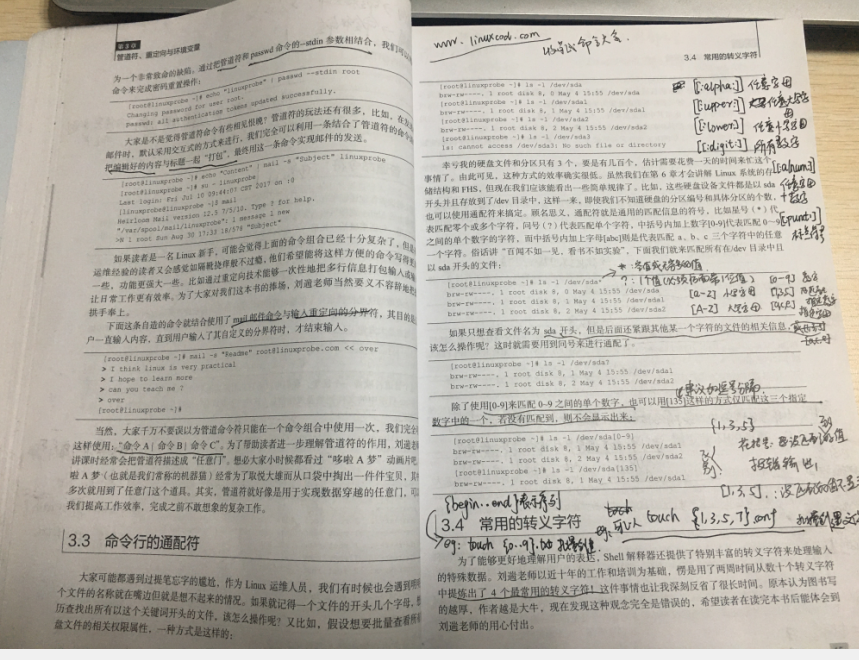 第3章
管道符、重定向与环境变量
为一个非常致命的缺陷，通过把管道符和 passwd 命令的--stdin 参数相结合，我们可以
命令来完成密码重置操作：
[root@linuxprobe ~]# echo "linuxprobe" | passwd --stdin root
Changing password for user root.
passwd: all authentication tokens updated successfully.
大家是不是觉得管道符命令有些相见恨晚？管道符的玩法还有很多，比如，在发送
邮件时，默认采用交互式的方式来进行，我们完全可以利用一条结合了管道符的命令
把编辑好的内容与标题一起“打包”，最终用这一条命令实现邮件的发送。
[root@linuxprobe ~]# echo "Content" | mail -s "Subject" linuxprobe
[root@linuxprobe ~]# su - linuxprobe
Last login: Fri Jul 10 09:44:07 CST 2017 on :0
[linuxprobe@linuxprobe ~]$ mail
Heirloom Mail version 12.5 7/5/10. Type ? for help.
"/var/spool/mail/linuxprobe": 1 message 1 new
>N 1 root Sun Aug 30 17:33 18/578 "Subject"
如果读者是一名 Linux 新手，可能会觉得上面的命令组合已经十分复杂了，但是
运维经验的读者又会感觉如隔靴搔痒般不过瘾，他们希望能将这样方便的命令写得更
一些，功能更强大一些。比如通过重定向技术能够一次性地把多行信息打包输入或输
让日常工作更有效率。为了大家对我们这本书的捧场，刘遄老师当然要义不容辞地
拱手奉上。
下面这条自造的命令就结合使用了 mail 邮件命令与输入重定向的分界符，其目的是
户一直输入内容，直到用户输入了其自定义的分界符时，才结束输入。
[root@linuxprobe ~]# mail -s "Readme" root@linuxprobe.com << over
> I think linux is very practical
> I hope to learn more
> can you teach me ?
> over
[root@linuxprobe ~]#
当然，大家千万不要误以为管道命令符只能在一个命令组合中使用一次，我们完全
这样使用：“命令 A | 命令 B | 命令 C”。为了帮助读者进一步理解管道符的作用，刘遄老
讲课时经常会把管道符描述成“任意门”。想必大家小时候都看过“哆啦 A 梦”动画片吧
啦 A 梦（也就是我们常称的机器猫）经常为了取悦大雄而从口袋中掏出一件件宝贝，其
多次就用到了任意门这个道具。其实，管道符就好像是用于实现数据穿越的任意门，可以
我们提高工作效率，完成之前不敢想象的复杂工作。
3.3 命令行的通配符
大家可能都遇到过提笔忘字的尴尬，作为 Linux 运维人员，我们有时候也会遇到明明
个文件的名称就在嘴边但就是想不起来的情况。如果就记得一个文件的开头几个字母，想
历查找出所有以这个关键词开头的文件，该怎么操作呢？又比如，假设想要批量查看所有
盘文件的相关权限属性，一种方式是这样的：
www.linuxcool.com
命令大全.
3.4 常用的转义字符
[root@linuxprobe ~]# ls -l /dev/sda
brw-rw----. 1 root disk 8, 0 May 4 15:55 /dev/sda
[root@linuxprobe ~]# ls -l /dev/sda1
brw-rw----. 1 root disk 8, 1 May 4 15:55 /dev/sda1
[root@linuxprobe ~]# ls -l /dev/sda2
brw-rw----. 1 root disk 8, 2 May 4 15:55 /dev/sda2
[root@linuxprobe ~]# ls -l /dev/sda3
ls: cannot access /dev/sda3: No such file or directory
[[:alpha:]] 任意字母
[[:upper:]] 任意大写字母
[[:lower:]] 任意小写字母
[[:digit:]] 所有数字
[[:alnum:]] 任意字母+数字
[[:punct:]] 标点符号
幸亏我的硬盘文件和分区只有 3 个，要是有几百个，估计需要花费一天的时间来忙这个
事情了。由此可见，这种方式的效率确实很低。虽然我们在第 6 章才会讲解 Linux 系统的存
储结构和 FHS，但现在我们应该能看出一些简单规律了。比如，这些硬盘设备文件都是以 sda
开头并且存放到了/dev 目录中，这样一来，即使我们不知道硬盘的分区编号和具体分区的个数，
也可以使用通配符来搞定。顾名思义，通配符就是通用的匹配信息的符号，比如星号（*）代
表匹配零个或多个字符，问号（?）代表匹配单个字符，中括号内加上数字[0-9]代表匹配 0~9
之间的单个数字的字符，而中括号内加上字母[abc]则是代表匹配 a、b、c 三个字符中的任意
一个字符。俗话讲“百闻不如一见，看书不如实验”，下面我们就来匹配所有在/dev 目录中且
以 sda 开头的文件：
[root@linuxprobe ~]# ls -l /dev/sda*
brw-rw----. 1 root disk 8, 0 May 4 15:55 /dev/sda
brw-rw----. 1 root disk 8, 1 May 4 15:55 /dev/sda1
brw-rw----. 1 root disk 8, 2 May 4 15:55 /dev/sda2
[0-9] 数字
[a-z] 小写字母
[A-Z] 大写字母
如果只想查看文件名为 sda 开头，但是后面还紧跟其他某一个字符的文件的相关信息，
该怎么操作呢？这时就需要用到问号来进行通配了。
[root@linuxprobe ~]# ls -l /dev/sda?
brw-rw----. 1 root disk 8, 1 May 4 15:55 /dev/sda1
brw-rw----. 1 root disk 8, 2 May 4 15:55 /dev/sda2
建议加逗号分隔
除了使用[0-9]来匹配 0~9 之间的单个数字，也可以用[135]这样的方式仅匹配这三个指定
数字中的一个，若没有匹配到，则不会显示出来：
[root@linuxprobe ~]# ls -l /dev/sda[0-9]
brw-rw----. 1 root disk 8, 1 May 4 15:55 /dev/sda1
brw-rw----. 1 root disk 8, 2 May 4 15:55 /dev/sda2
[root@linuxprobe ~]# ls -l /dev/sda[135]
brw-rw----. 1 root disk 8, 1 May 4 15:55 /dev/sda1
{1,3,5}
[1,3,5]
{begin..end}表示序列
touch
3.4 常用的转义字符
touch {1,3,5,7}.conf
eg: touch {0..9}.txt
为了能够更好地理解用户的表达，Shell 解释器还提供了特别丰富的转义字符来处理输入
的特殊数据。刘遄老师以近十年的工作和培训为基础，愣是用了两周时间从数十个转义字符
中提炼出了 4 个最常用的转义字符！这件事情也让我深刻反省了很长时间。原本认为图书写
的越厚，作者越是大牛，现在发现这种观念完全是错误的，希望读者在读完本书后能体会到
刘遄老师的用心付出。